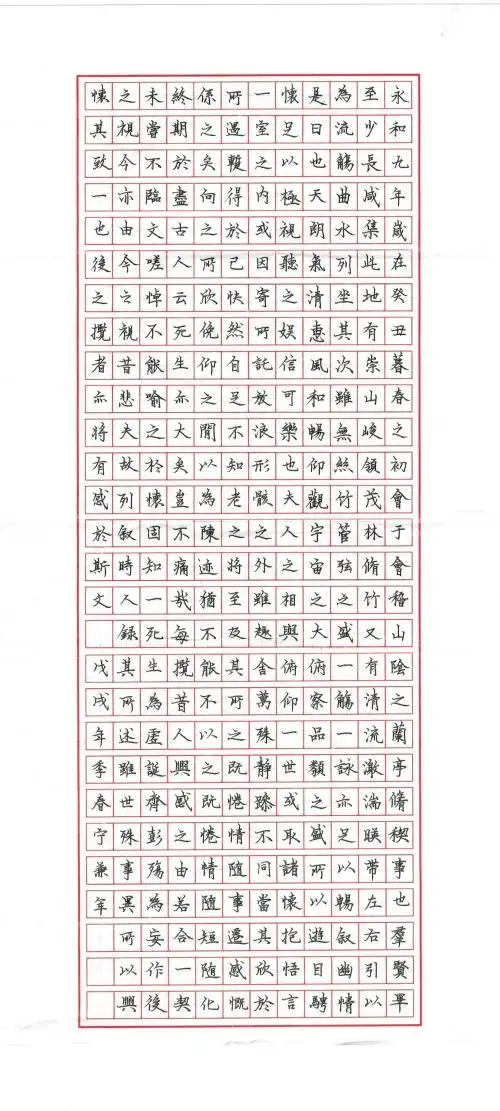 永和九年歲在癸丑暮春之初會于會稽山陰之蘭亭脩稧事也羣賢畢
至少長咸集此地有崇山峻領茂林脩竹又有清流激湍暎帶左右引以
為流觴曲水列坐其次雖無絲竹管弦之盛一觴一詠亦足以暢叙幽情
是日也天朗氣清惠風和暢仰觀宇宙之大俯察品類之盛所以遊目騁
懷足以極視聽之娛信可樂也夫人之相與俯仰一世或取諸懷抱悟言
一室之內或因寄所託放浪形骸之外雖趣舍萬殊静躁不同當其欣於
所遇暫得於己快然自足不知老之將至及其所之既惓情隨事遷感慨
係之矣向之所欣俛仰之閒以為陳迹猶不能不以之既惓情隨短隨化
終期於盡古人云死生亦大矣豈不痛哉每攬昔人興感之由若合一契
未當不臨文嗟悼不能喻之於懷固知一死生為虛誕齊彭殤為妄作後
之視今亦由今之視昔悲夫故列叙時人錄其所述雖世殊事異所以興
懷其致一也後之攬者亦將有感於斯文戊戌年季春宁兼年